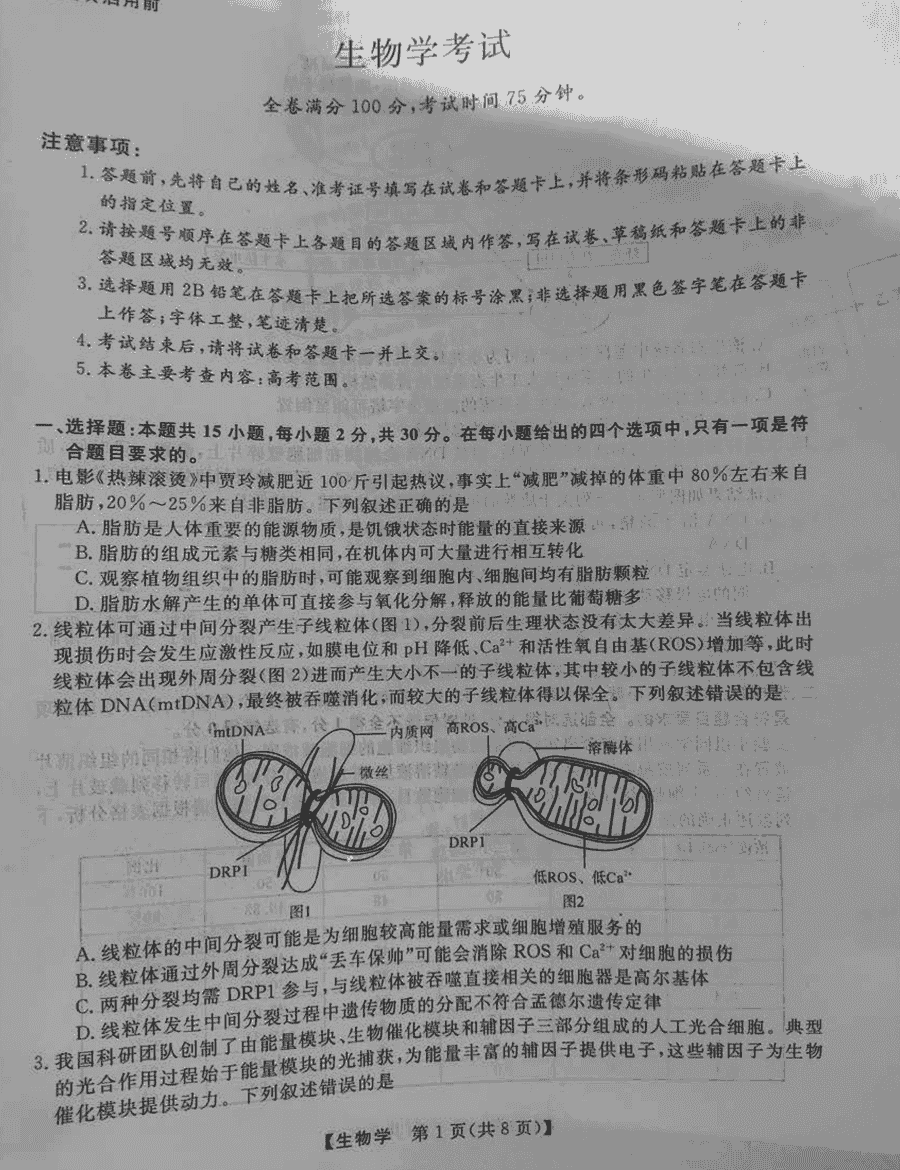 启用前
生物学考试
全卷满分 100 分,考试时间 75 分钟。
注意事项:
1. 答题前,先将自己的姓名、准考证号填写在试卷和答题卡上,并将条形码粘贴在答题卡上
的指定位置。
2. 请按题号顺序在答题卡上各题目的答题区域内作答,写在试卷、草稿纸和答题卡上的非
答题区域均无效。
3. 选择题用 2B 铅笔在答题卡上把所选答案的标号涂黑;非选择题用黑色签字笔在答题卡
上作答;字体工整,笔迹清楚。
4. 考试结束后,请将试卷和答题卡一并上交。
5. 本卷主要考查内容:高考范围。
一、选择题:本题共 15 小题,每小题 2 分,共 30 分。在每小题给出的四个选项中,只有一项是符
合题目要求的。
1. 电影《热辣滚烫》中贾玲减肥近 100 斤引起热议,事实上“减肥”减掉的体重中 80%左右来自
脂肪,20%～25%来自非脂肪。下列叙述正确的是
A. 脂肪是人体重要的能源物质,是饥饿状态时能量的直接来源
B. 脂肪的组成元素与糖类相同,在机体内可大量进行相互转化
C. 观察植物组织中的脂肪时,可能观察到细胞内、细胞间均有脂肪颗粒
D. 脂肪水解产生的单体可直接参与氧化分解,释放的能量比葡萄糖多
2. 线粒体可通过中间分裂产生子线粒体(图 1),分裂前后生理状态没有太大差异。当线粒体出
现损伤时会发生应激性反应,如膜电位和 pH 降低、Ca²⁺ 和活性氧自由基(ROS)增加等,此时
线粒体会出现外周分裂(图 2)进而产生大小不一的子线粒体,其中较小的子线粒体不包含线
粒体 DNA(mtDNA),最终被吞噬消化,而较大的子线粒体得以保全。下列叙述错误的是
mtDNA
内质网
高ROS、高Ca²⁺
溶酶体
微丝
DRP1
DRP1
低ROS、低Ca²⁺
图1
图2
A. 线粒体的中间分裂可能是为细胞较高能量需求或细胞增殖服务的
B. 线粒体通过外周分裂达成“丢车保帅”可能会消除 ROS 和 Ca²⁺ 对细胞的损伤
C. 两种分裂均需 DRP1 参与,与线粒体被吞噬直接相关的细胞器是高尔基体
D. 线粒体发生中间分裂过程中遗传物质的分配不符合孟德尔遗传定律
3. 我国科研团队创制了由能量模块、生物催化模块和辅因子三部分组成的人工光合细胞。典型
的光合作用过程始于能量模块的光捕获,为能量丰富的辅因子提供电子,这些辅因子为生物
催化模块提供动力。下列叙述错误的是
【生物学 第 1 页(共 8 页)】